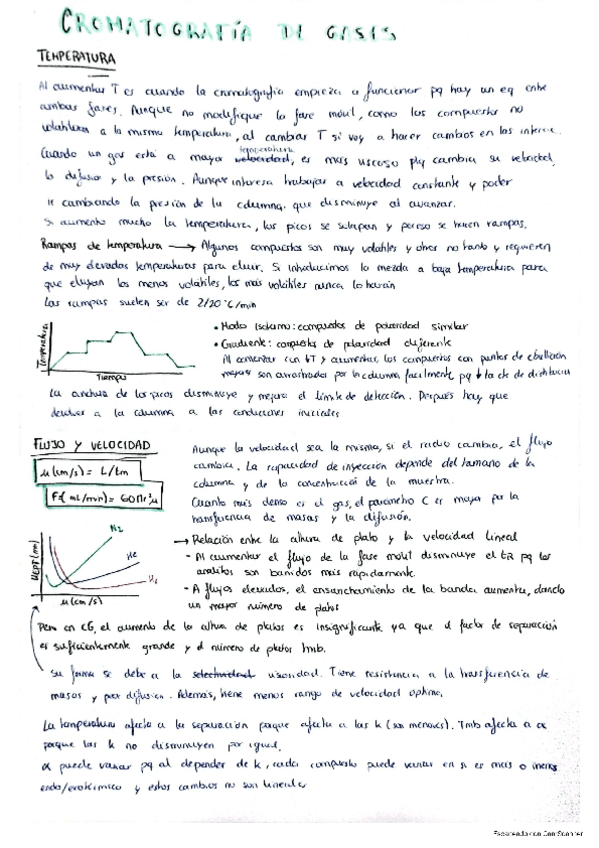 CROMATOGRAFÍA DE GASES
TEMPERATURA
Al aumentar T es cuando la cromatografía empieza a funcionar pq hay un eq entre
ambas fases. Aunque no modifique la fase móvil, como los compuestos no
volatilizan a la misma temperatura, al cambiar T si voy a hacer cambios en las interac.
Cuando un gas está a mayor velocidad, es más viscoso pq cambia su velocidad,
temperatura
la difusión y la presión. Aunque interesa trabajar a velocidad constante y poder
ir cambiando la presión de la columna, que disminuye al avanzar.
Si aumento mucho la temperatura, los picos se solapan y por eso se hacen rampas.
Rampas de temperatura → Algunos compuestos son muy volátiles y otros no tanto y requieren
de muy elevadas temperaturas para eluir. Si introducimos la mezcla a baja temperatura para
que eluyan los menos volátiles, los más volátiles nunca lo harán
Las rampas suelen ser de 2/20 °C/min
Temperatura
Tiempo
• Modo Isotermo: compuestos de polaridad similar
• Gradiente: compuestos de polaridad diferente
Al comenzar con ↓T y aumentar, los compuestos con puntos de ebullición
mayores son arrastrados por la columna facilmente pq ↓ la cte de distribución
La anchura de los picos disminuye y mejora el límite de detección. Después hay que
devolver a la columna a las condiciones iniciales
FLUJO Y VELOCIDAD
μ(cm/s) = L/tm
F(mL/min) = 60πr²μ
Aunque la velocidad sea la misma, si el radio cambia, el flujo
cambia. La capacidad de inyección depende del tamaño de la
columna y de la concentración de la muestra.
Cuanto más denso es el gas, el parámetro C es mayor por la
transferencia de masas y la difusión.
HEPT (mm)
N₂
He
H₂
μ (cm/s)
→ Relación entre la altura de plato y la velocidad lineal
- Al aumentar el flujo de la fase móvil disminuye el tR pq los
analitos son barridos más rápidamente.
- A flujos elevados, el ensanchamiento de la banda aumenta, dando
un mayor número de platos
Pero en CG, el aumento de la altura de platos es insignificante ya que el factor de separación
es suficientemente grande y el número de platos tmb.
Su forma se debe a la viscosidad. Tiene resistencia a la transferencia de
masas y por difusión. Además, tiene menos rango de velocidad óptima.
La temperatura afecta a la separación porque afecta a las k (son menores). Tmb afecta a α
porque las k no disminuyen por igual.
α puede variar pq al depender de k, cada compuesto puede variar en si es más o menos
endo/exotérmico y estos cambios no son lineales
Escaneado con CamScanner